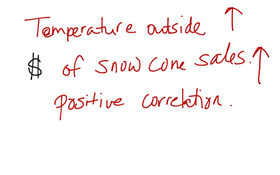 Temperature outside ↑
$ of snow cone sales. ↑
positive correlation.